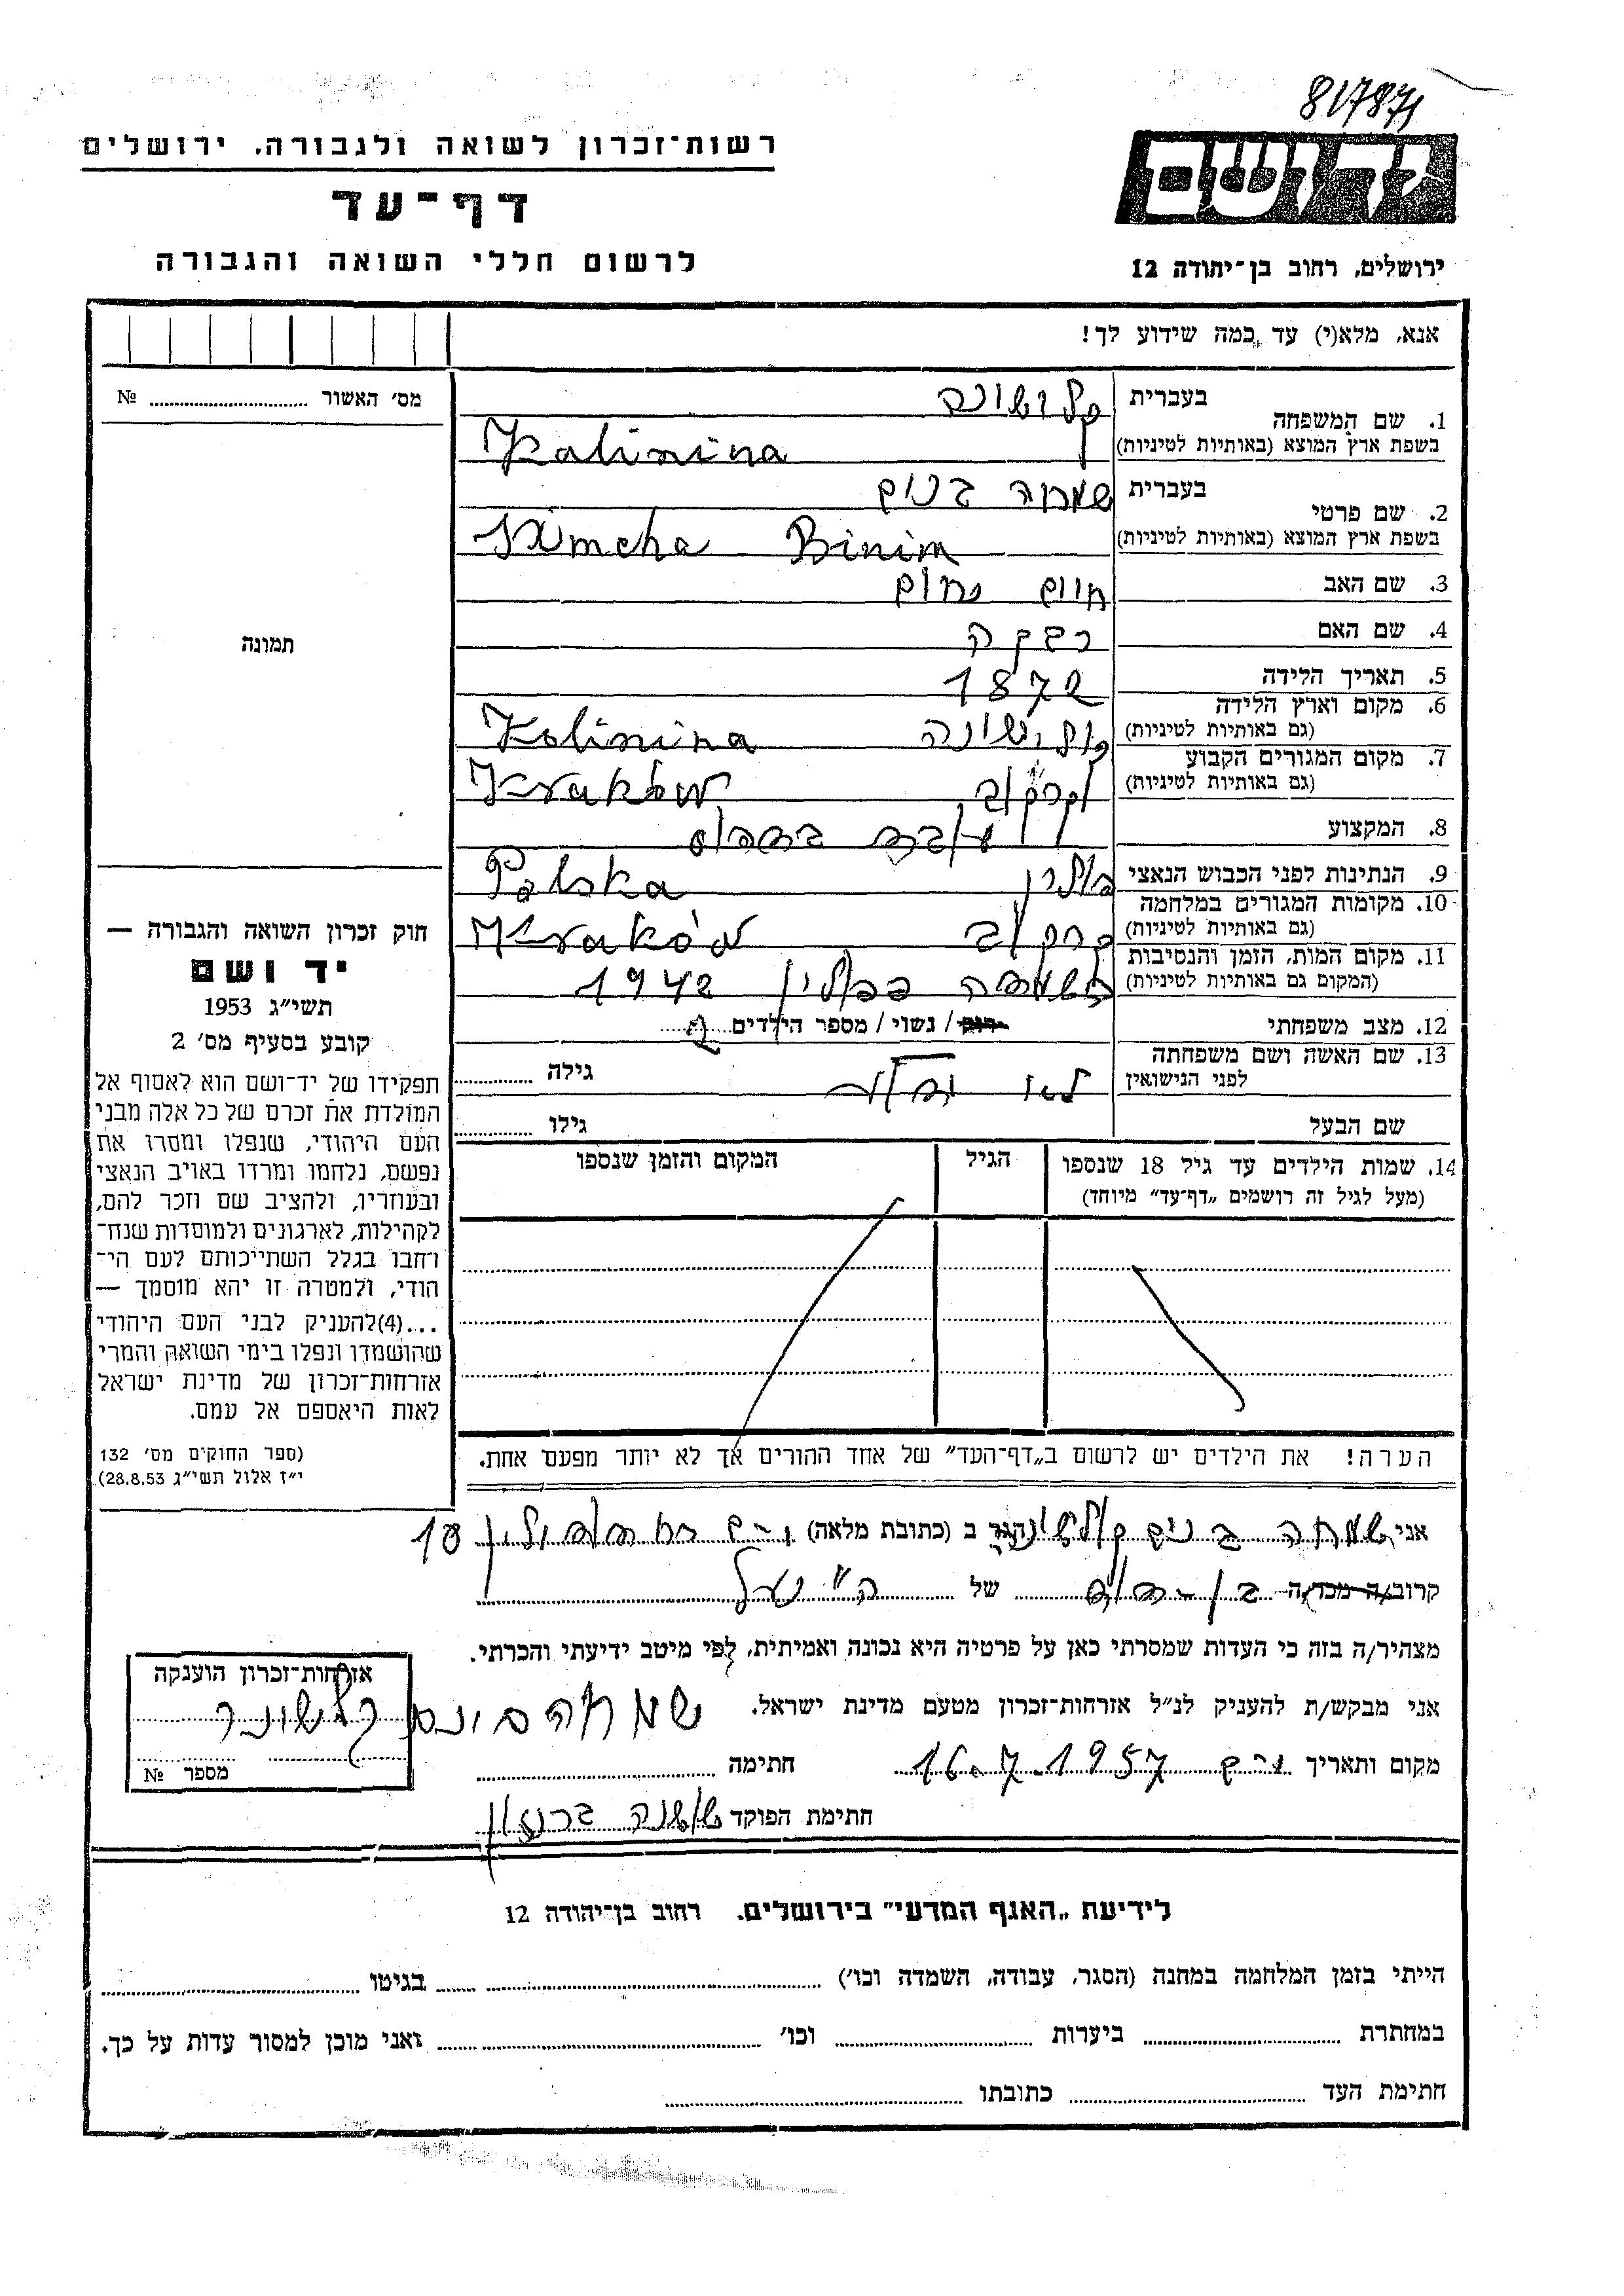 817871
יד ושם
רשות־זכרון לשואה ולגבורה, ירושלים
דף־עד
לרשום חללי השואה והגבורה
ירושלים, רחוב בן־יהודה 12
אנא, מלא(י) עד כמה שידוע לך!
מס׳ האשור № 
1. שם המשפחה בעברית
בשפת ארץ המוצא (באותיות לטיניות) Kalinina
2. שם פרטי בעברית שמחה בנים
בשפת ארץ המוצא (באותיות לטיניות) Simcha Binim
3. שם האב חיים נחום
4. שם האם רבקה
5. תאריך הלידה 1872
6. מקום וארץ הלידה
(גם באותיות לטיניות) Kalinina
7. מקום המגורים הקבוע
(גם באותיות לטיניות) קרקוב Kraków
8. המקצוע
9. הנתינות לפני הכבוש הנאצי פולין Polska
10. מקומות המגורים במלחמה
(גם באותיות לטיניות) קרקוב Kraków
11. מקום המות, הזמן והנסיבות
(המקום גם באותיות לטיניות) 1942
12. מצב משפחתי רווק / נשוי / מספר הילדים
13. שם האשה ושם משפחתה
לפני הנישואין לאו גילה
שם הבעל גילו
14. שמות הילדים עד גיל 18 שנספו
(מעל לגיל זה רושמים „דף־עד״ מיוחד)
הגיל
המקום והזמן שנספו
תמונה
חוק זכרון השואה והגבורה —
יד ושם
תשי״ג 1953
קובע בסעיף מס׳ 2
תפקידו של יד־ושם הוא לאסוף אל
המולדת את זכרם של כל אלה מבני
העם היהודי, שנפלו ומסרו את
נפשם, נלחמו ומרדו באויב הנאצי
ובעוזריו, ולהציב שם וזכר להם,
לקהילות, לארגונים ולמוסדות שנח־
רחבו בגלל השתייכותם לעם הי־
הודי, ולמטרה זו יהא מוסמך —
...(4)להעניק לבני העם היהודי
שהושמדו ונפלו בימי השואה והמרי
אזרחות־זכרון של מדינת ישראל
לאות היאספם אל עמם.
(ספר החוקים מס׳ 132
י״ז אלול תשי״ג 28.8.53)
הערה! את הילדים יש לרשום ב„דף־העד״ של אחד ההורים אך לא יותר מפעם אחת.
אני שמחה בנים הגר ב (כתובת מלאה) 10
קרוב/ה מכר/ה של הנ״ל
מצהיר/ה בזה כי העדות שמסרתי כאן על פרטיה היא נכונה ואמיתית, לפי מיטב ידיעתי והכרתי.
אני מבקש/ת להעניק לנ״ל אזרחות־זכרון מטעם מדינת ישראל.
מקום ותאריך 16.7.1957 חתימה שמחה בונם
חתימת הפוקד
אזרחות־זכרון הוענקה
מספר №
לידיעת „האגף המדעי״ בירושלים, רחוב בן־יהודה 12
הייתי בזמן המלחמה במחנה (הסגר, עבודה, השמדה וכו׳) בגיטו
במחתרת ביערות וכו׳ ואני מוכן למסור עדות על כך.
חתימת העד כתובתו